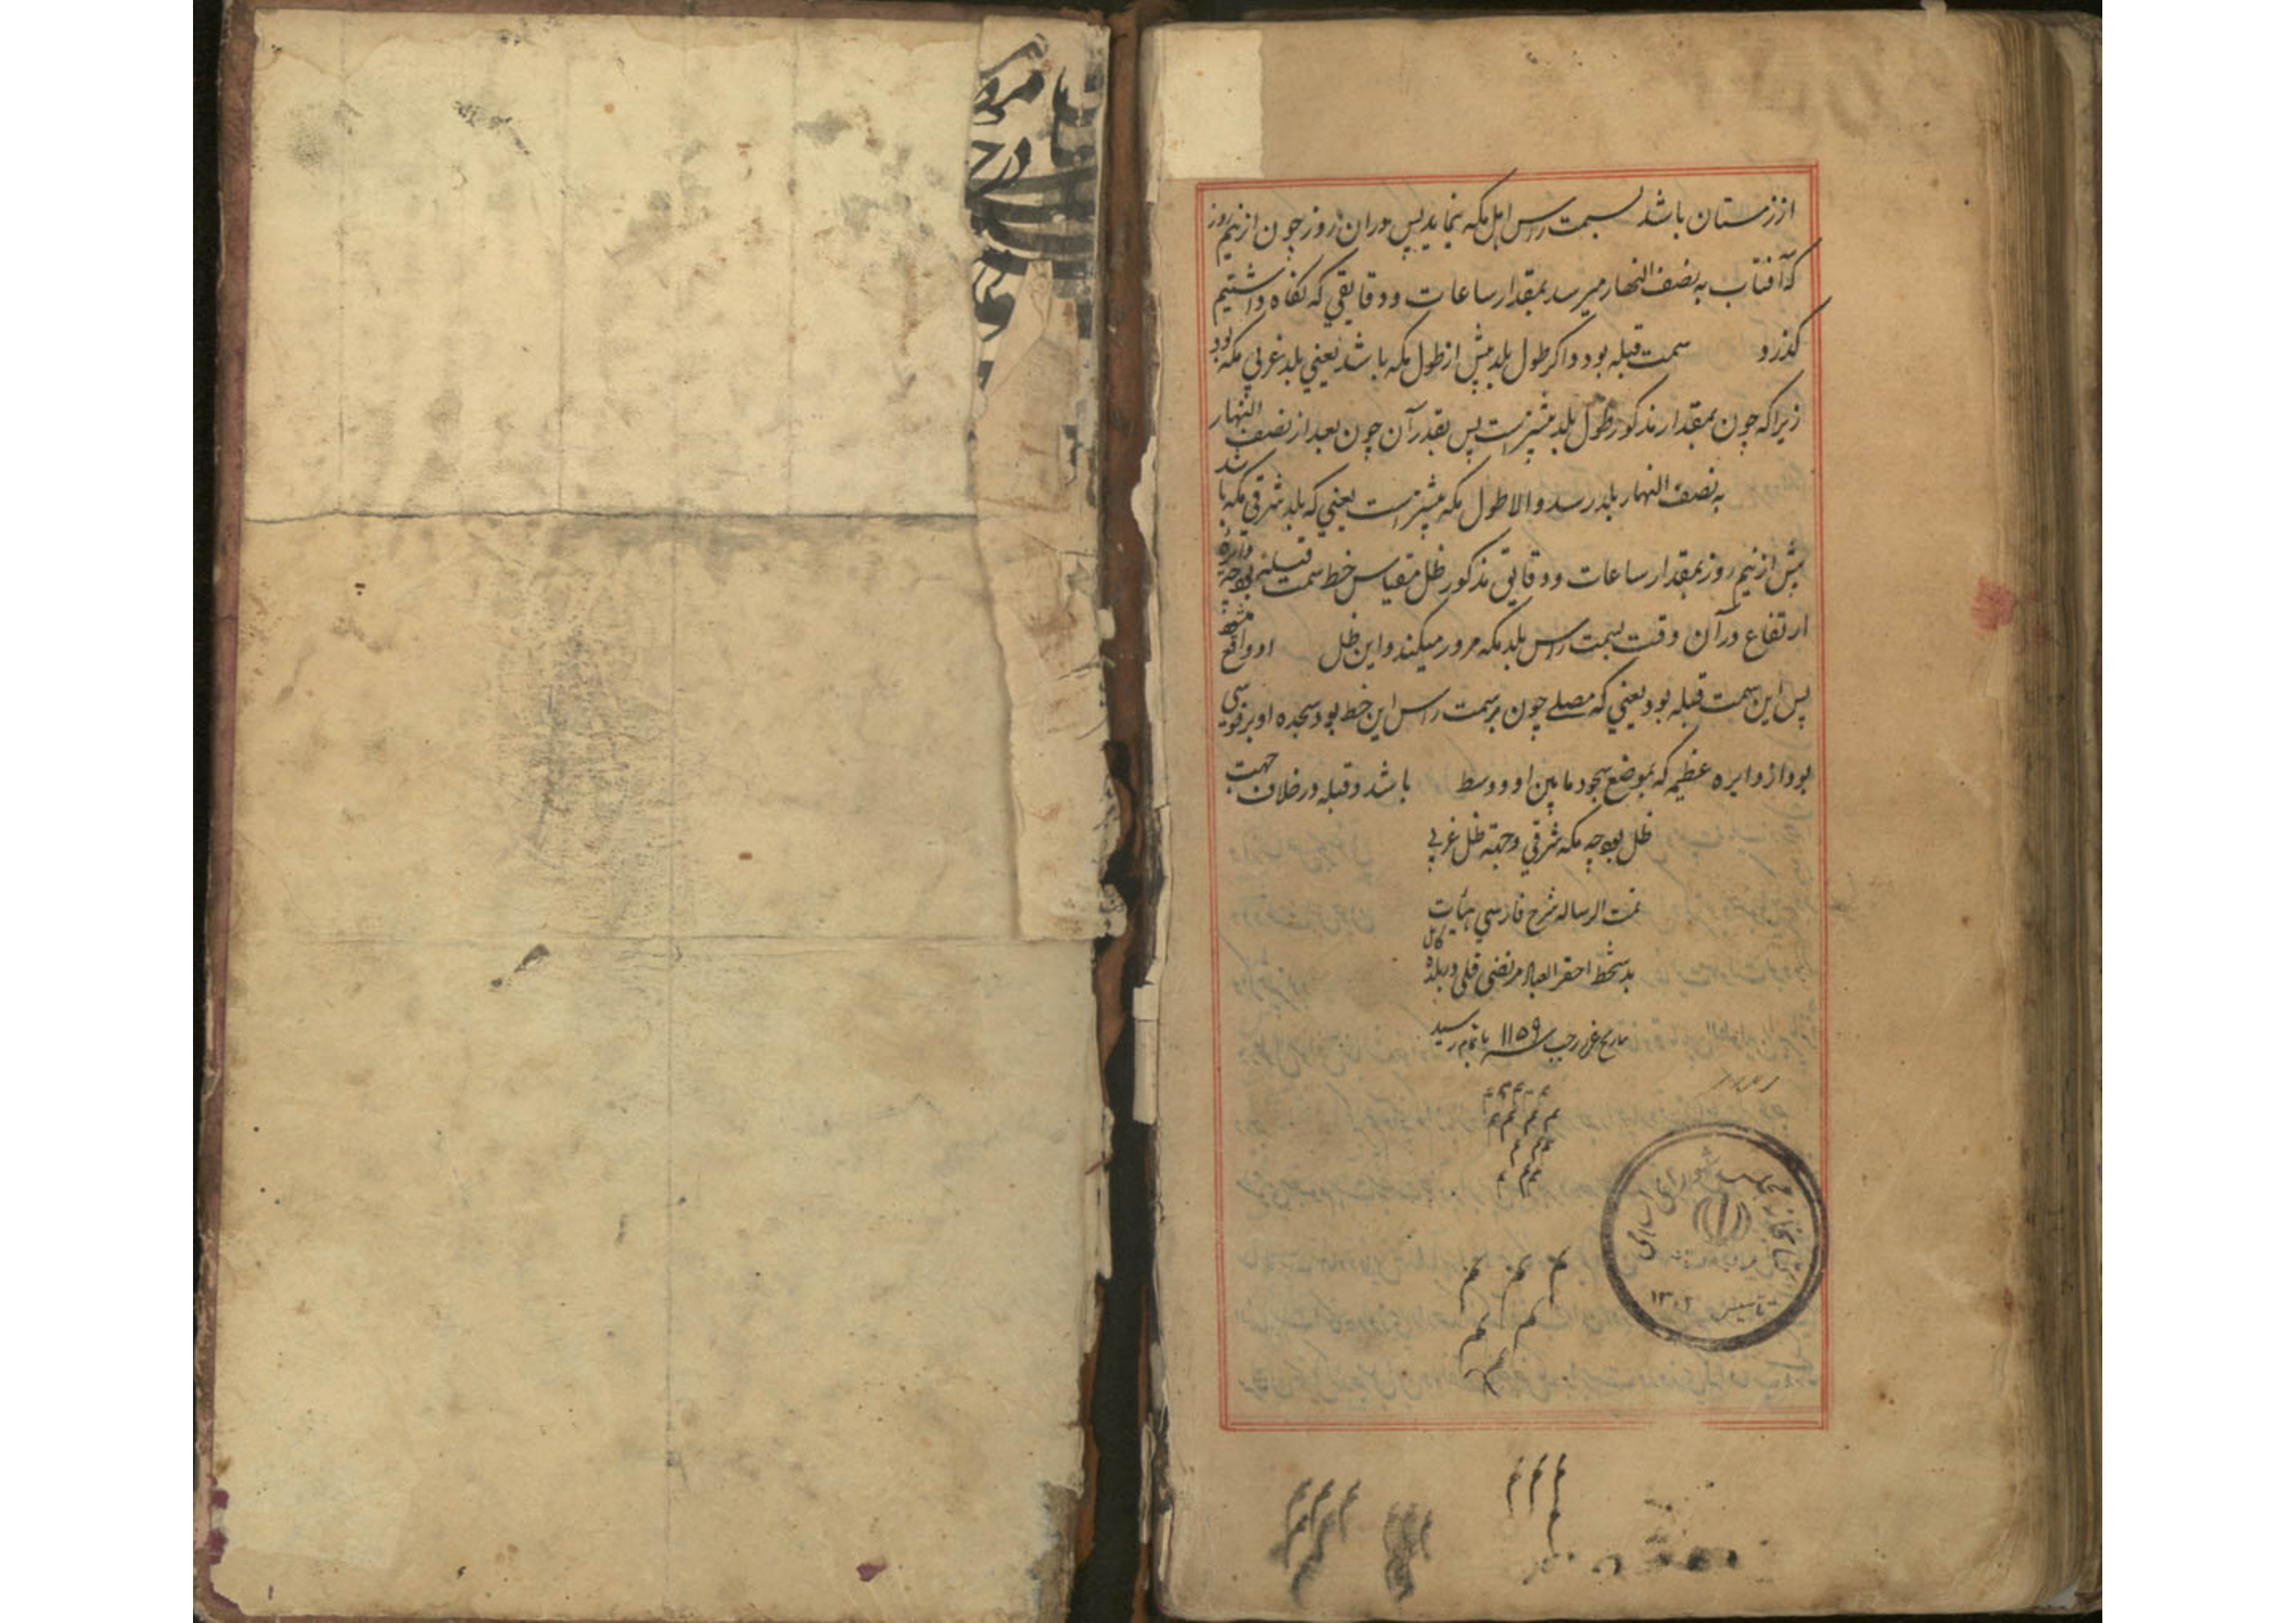 از زمستان باشد بسمت راس اهل مکه نماید پس دران روز چون از نیم روز
که آفتاب به نصف النهار میرسد بمقدار ساعات و دقایقی که نگاه داشتیم
کذرد سمت قبله بود و اکر طول بلد بیش از طول مکه باشد یعنی بلد غربی مکه بود
زیرا که چون بمقدار مذکور طول بلد بیشتر است پس بقدر آن چون بعد از نصف النهار
به نصف النهار بلد رسد و الا طول مکه بیشتر است یعنی که بلد شرقی مکه باشد
پیش از نیم روز بمقدار ساعات و دقایق مذکور ظل مقیاس خط سمت قبله بود چه دایره
ارتفاع در آن وقت بسمت راس بلد مکه مرور میکند و این ظل او واقع
پس این سمت قبله بود یعنی که مصلی چون بر سمت راس این خط بود سجده او بر قوسی
بود از دایره عظیمه که بموضع سجود مابین او و وسط باشد و قبله در خلاف جهت
ظل بود چه مکه شرقی و جهته ظل غربی
تمت الرساله شرح فارسی هیأت
بدستخط احقر العباد مرتضی قلی در بلده کابل
تاریخ غره رجب سنه ۱۱۵۹ باتمام رسید
کتابخانه مجلس شورای اسلامی
تاسیس ۱۳۰۲
مرو
درح